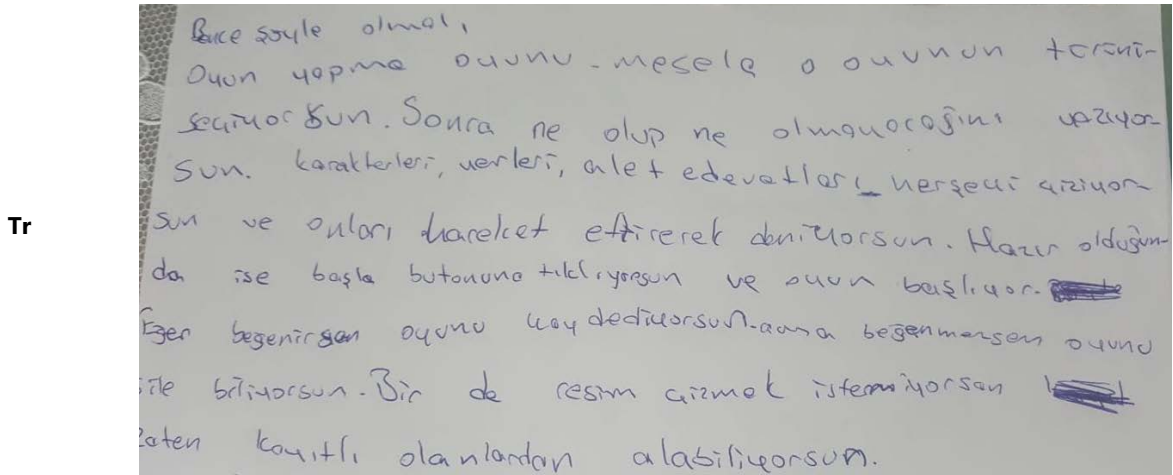 Tr
Bence şöyle olmalı,
Oyun yapma oyunu. mesela o oyunun türünü
seçiyorsun. Sonra ne olup ne olmayacağını yazıyor-
sun. karakterleri, yerleri, alet edevatları herşeyi çiziyor-
sun ve onları hareket ettirerek deniyorsun. Hazır olduğun-
da ise başla butonuna tıklıyorsun ve oyun başlıyor.
Eğer beğenirsen oyunu kaydediyorsun. ama beğenmezsen oyunu
sile biliyorsun. Bir de resim çizmek istemiyorsan
zaten kayıtlı olanlardan alabiliyorsun.